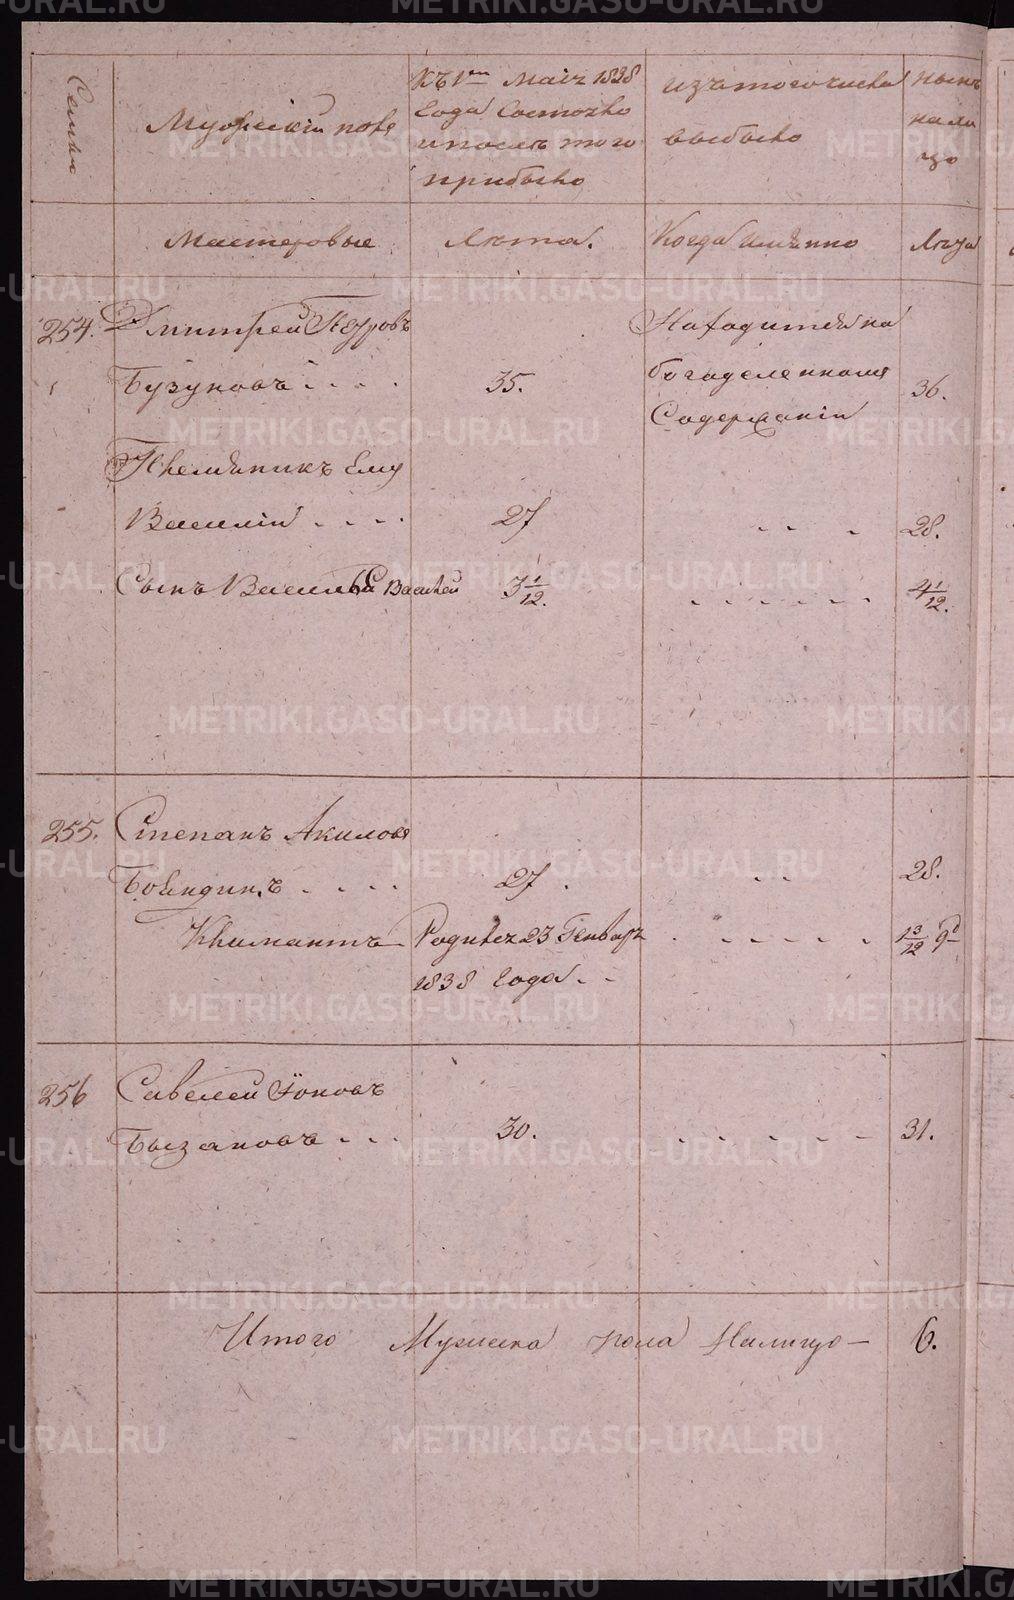 Семьи
Мужескiй полъ
Къ 1му Маiя 1838
года Состояло
и послѣ того
прибыло
Изъ того числа
выбыло
нынѣ
на ли
цо
Мастеровые
Лѣта.
Когда имянно
Лѣта
254. Дмитрей Петровъ
Бузуновъ . . . .
35.
Находится на
богаделенномъ
Содержанiи
36.
Племяникъ Ему
Василiй . . . .
27
28.
Сынъ Василья Василей
3 1/12.
4 1/12.
255. Степанъ Акиловъ
27.
28.
Климантъ
Родился 23 Генваря
1838 года
1 3/12 9д
256 Савелей Iоновъ
Бызановъ . . .
30.
31.
Итого Мужеска пола Налицо — 6.
METRIKI.GASO-URAL.RU